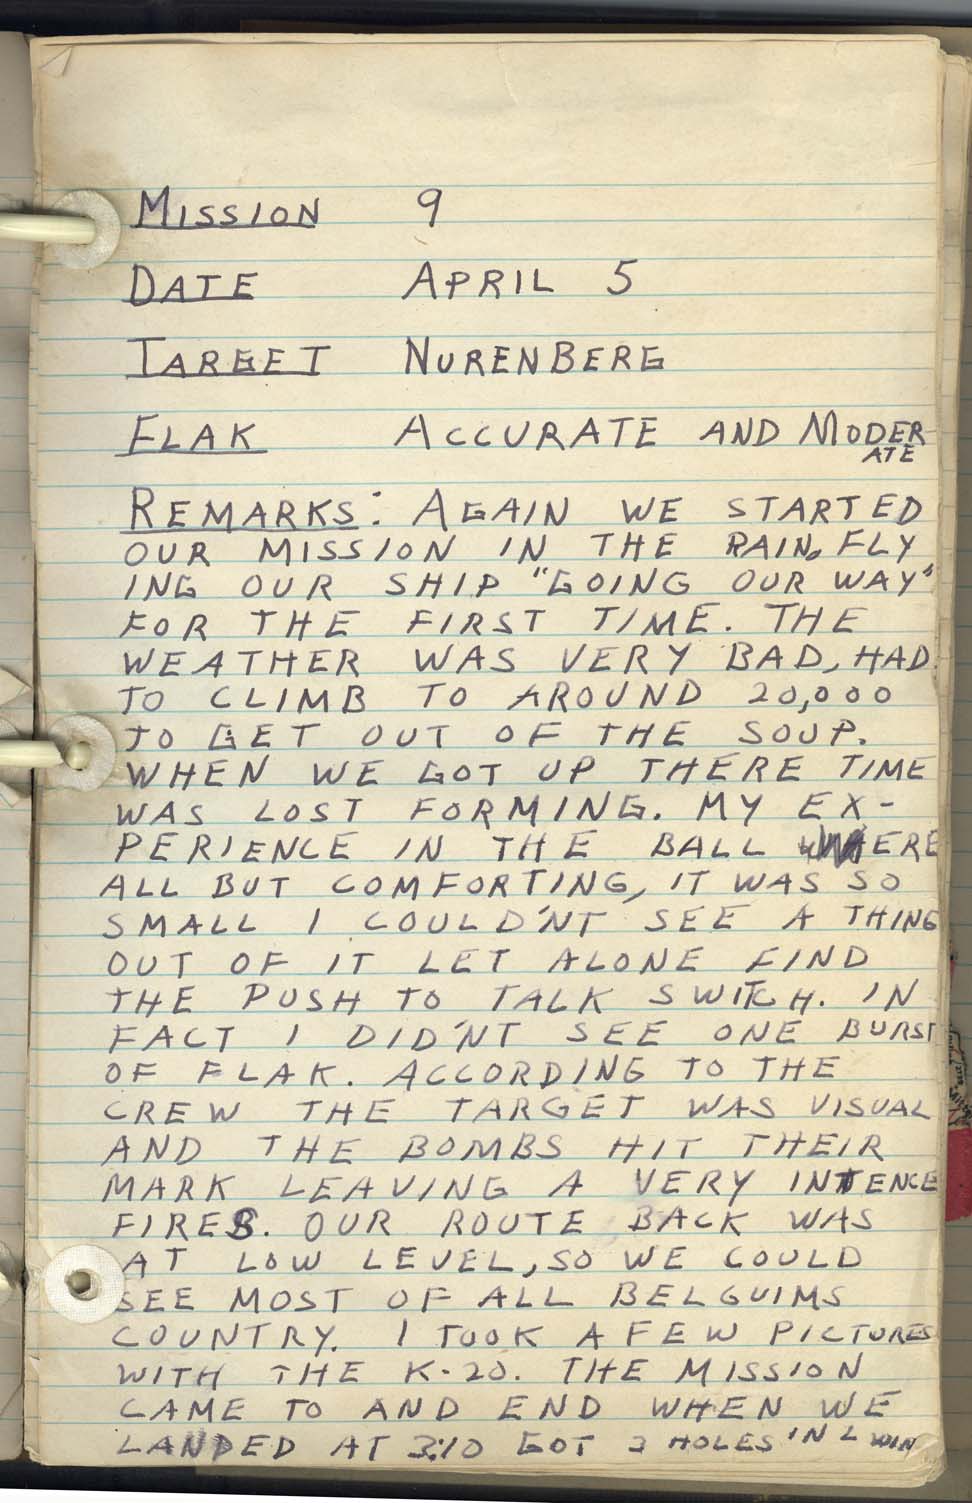 MISSION 9
DATE APRIL 5
TARGET NURENBERG
FLAK ACCURATE AND MODER
ATE
REMARKS: AGAIN WE STARTED
OUR MISSION IN THE RAIN, FLY
ING OUR SHIP "GOING OUR WAY"
FOR THE FIRST TIME. THE
WEATHER WAS VERY BAD, HAD
TO CLIMB TO AROUND 20,000
TO GET OUT OF THE SOUP.
WHEN WE GOT UP THERE TIME
WAS LOST FORMING. MY EX-
PERIENCE IN THE BALL WHERE
ALL BUT COMFORTING, IT WAS SO
SMALL I COULD'NT SEE A THING
OUT OF IT LET ALONE FIND
THE PUSH TO TALK SWITCH. IN
FACT I DID'NT SEE ONE BURST
OF FLAK. ACCORDING TO THE
CREW THE TARGET WAS VISUAL
AND THE BOMBS HIT THEIR
MARK LEAVING A VERY INTENCE
FIRES. OUR ROUTE BACK WAS
AT LOW LEVEL, SO WE COULD
SEE MOST OF ALL BELGUIMS
COUNTRY. I TOOK A FEW PICTURES
WITH THE K-20. THE MISSION
CAME TO AND END WHEN WE
LANDED AT 3:10 GOT 2 HOLES IN L WIN